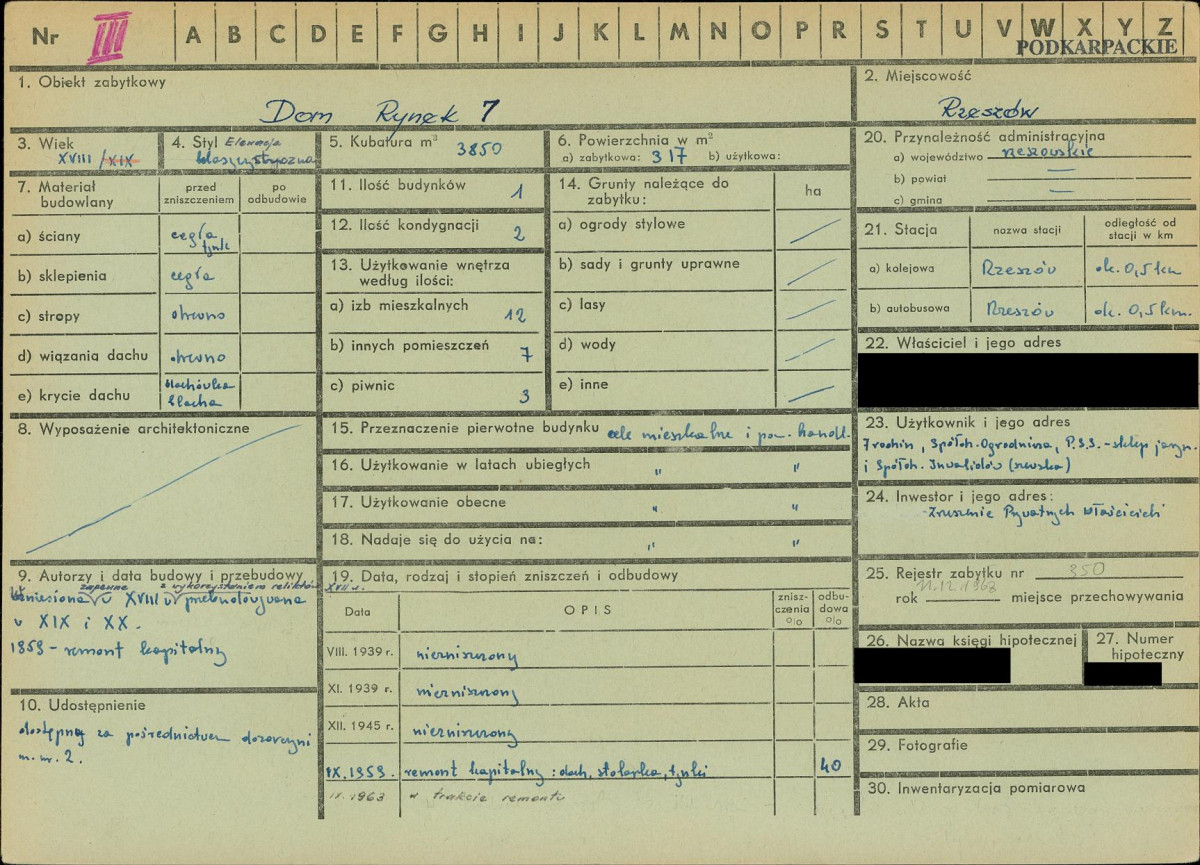 Nr III A B C D E F G H I J K L M N O P R S T U V W X Y Z
PODKARPACKIE
1. Obiekt zabytkowy
Dom Rynek 7
2. Miejscowość
Rzeszów
3. Wiek
XVIII/XIX
4. Styl Elewacja
klasycystyczna
5. Kubatura m³ 3850
6. Powierzchnia w m²
a) zabytkowa: 317 b) użytkowa:
20. Przynależność administracyjna
a) województwo rzeszowskie
b) powiat —
c) gmina —
7. Materiał budowlany
przed zniszczeniem
po odbudowie
a) ściany cegła tynk
b) sklepienia cegła
c) stropy drewno
d) wiązania dachu drewno
e) krycie dachu dachówka blacha
11. Ilość budynków 1
12. Ilość kondygnacji 2
13. Użytkowanie wnętrza
według ilości:
a) izb mieszkalnych 12
b) innych pomieszczeń 7
c) piwnic 3
14. Grunty należące do
zabytku:
ha
a) ogrody stylowe
b) sady i grunty uprawne
c) lasy
d) wody
e) inne
21. Stacja
nazwa stacji
odległość od
stacji w km
a) kolejowa Rzeszów ok. 0,5 km
b) autobusowa Rzeszów ok. 0,5 km.
22. Właściciel i jego adres
8. Wyposażenie architektoniczne
15. Przeznaczenie pierwotne budynku cele mieszkalne i pow. handl.
16. Użytkowanie w latach ubiegłych " "
17. Użytkowanie obecne " "
18. Nadaje się do użycia na: " "
23. Użytkownik i jego adres
Spółdz. Ogrodnicza, P.S.S. - sklep jarzyn.
i Spółdz. Inwalidów (szewska)
24. Inwestor i jego adres:
- Zrzeszenie Prywatnych Właścicieli
9. Autorzy i data budowy i przebudowy
zapewne z wykorzystaniem reliktów XVII w.
Wzniesiona w XVIII w przebudowywana
w XIX i XX.
1959 - remont kapitalny
10. Udostępnienie
dostępny za pośrednictwem dozorczyni
m. nr. 2.
19. Data, rodzaj i stopień zniszczeń i odbudowy
Data
OPIS
znisz-
czenia
%
odbu-
dowa
%
VIII. 1939 r. niezniszczony
XI. 1939 r. niezniszczony
XII. 1945 r. niezniszczony
IX. 1959. remont kapitalny: dach, stolarka, tynki 40
IX. 1963 w trakcie remontu
25. Rejestr zabytku nr 350
rok 11.12.1968 miejsce przechowywania
26. Nazwa księgi hipotecznej
27. Numer
hipoteczny
28. Akta
29. Fotografie
30. Inwentaryzacja pomiarowa